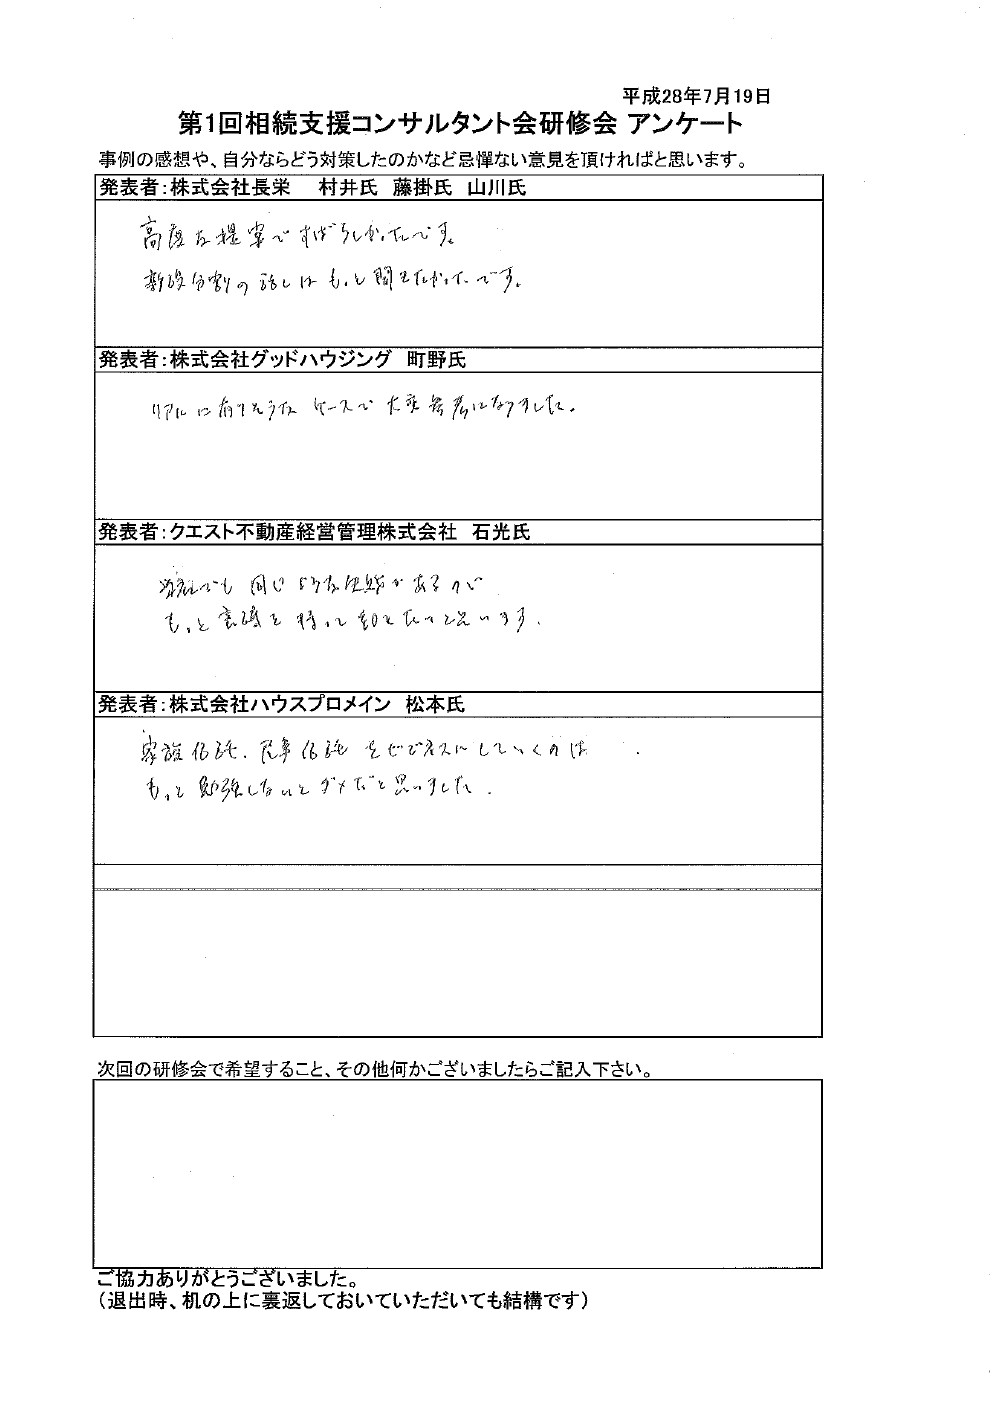 平成28年7月19日
第1回相続支援コンサルタント会研修会 アンケート
事例の感想や、自分ならどう対策したのかなど忌憚ない意見を頂ければと思います。
発表者：株式会社長栄　村井氏　藤掛氏　山川氏
高度な提案ですばらしかったです。
新設分割の話しはもっと聞きたかったです。
発表者：株式会社グッドハウジング　町野氏
リアルに有りそうなケースで大変参考になりました。
発表者：クエスト不動産経営管理株式会社　石光氏
でも同じような仕組があるので
もっと意識を持って
と思います.
発表者：株式会社ハウスプロメイン　松本氏
家族信託、民事信託をビジネスにしていくのは
もっと勉強しないとダメだと思いました.
次回の研修会で希望すること、その他何かございましたらご記入下さい。
ご協力ありがとうございました。
（退出時、机の上に裏返しておいていただいても結構です）